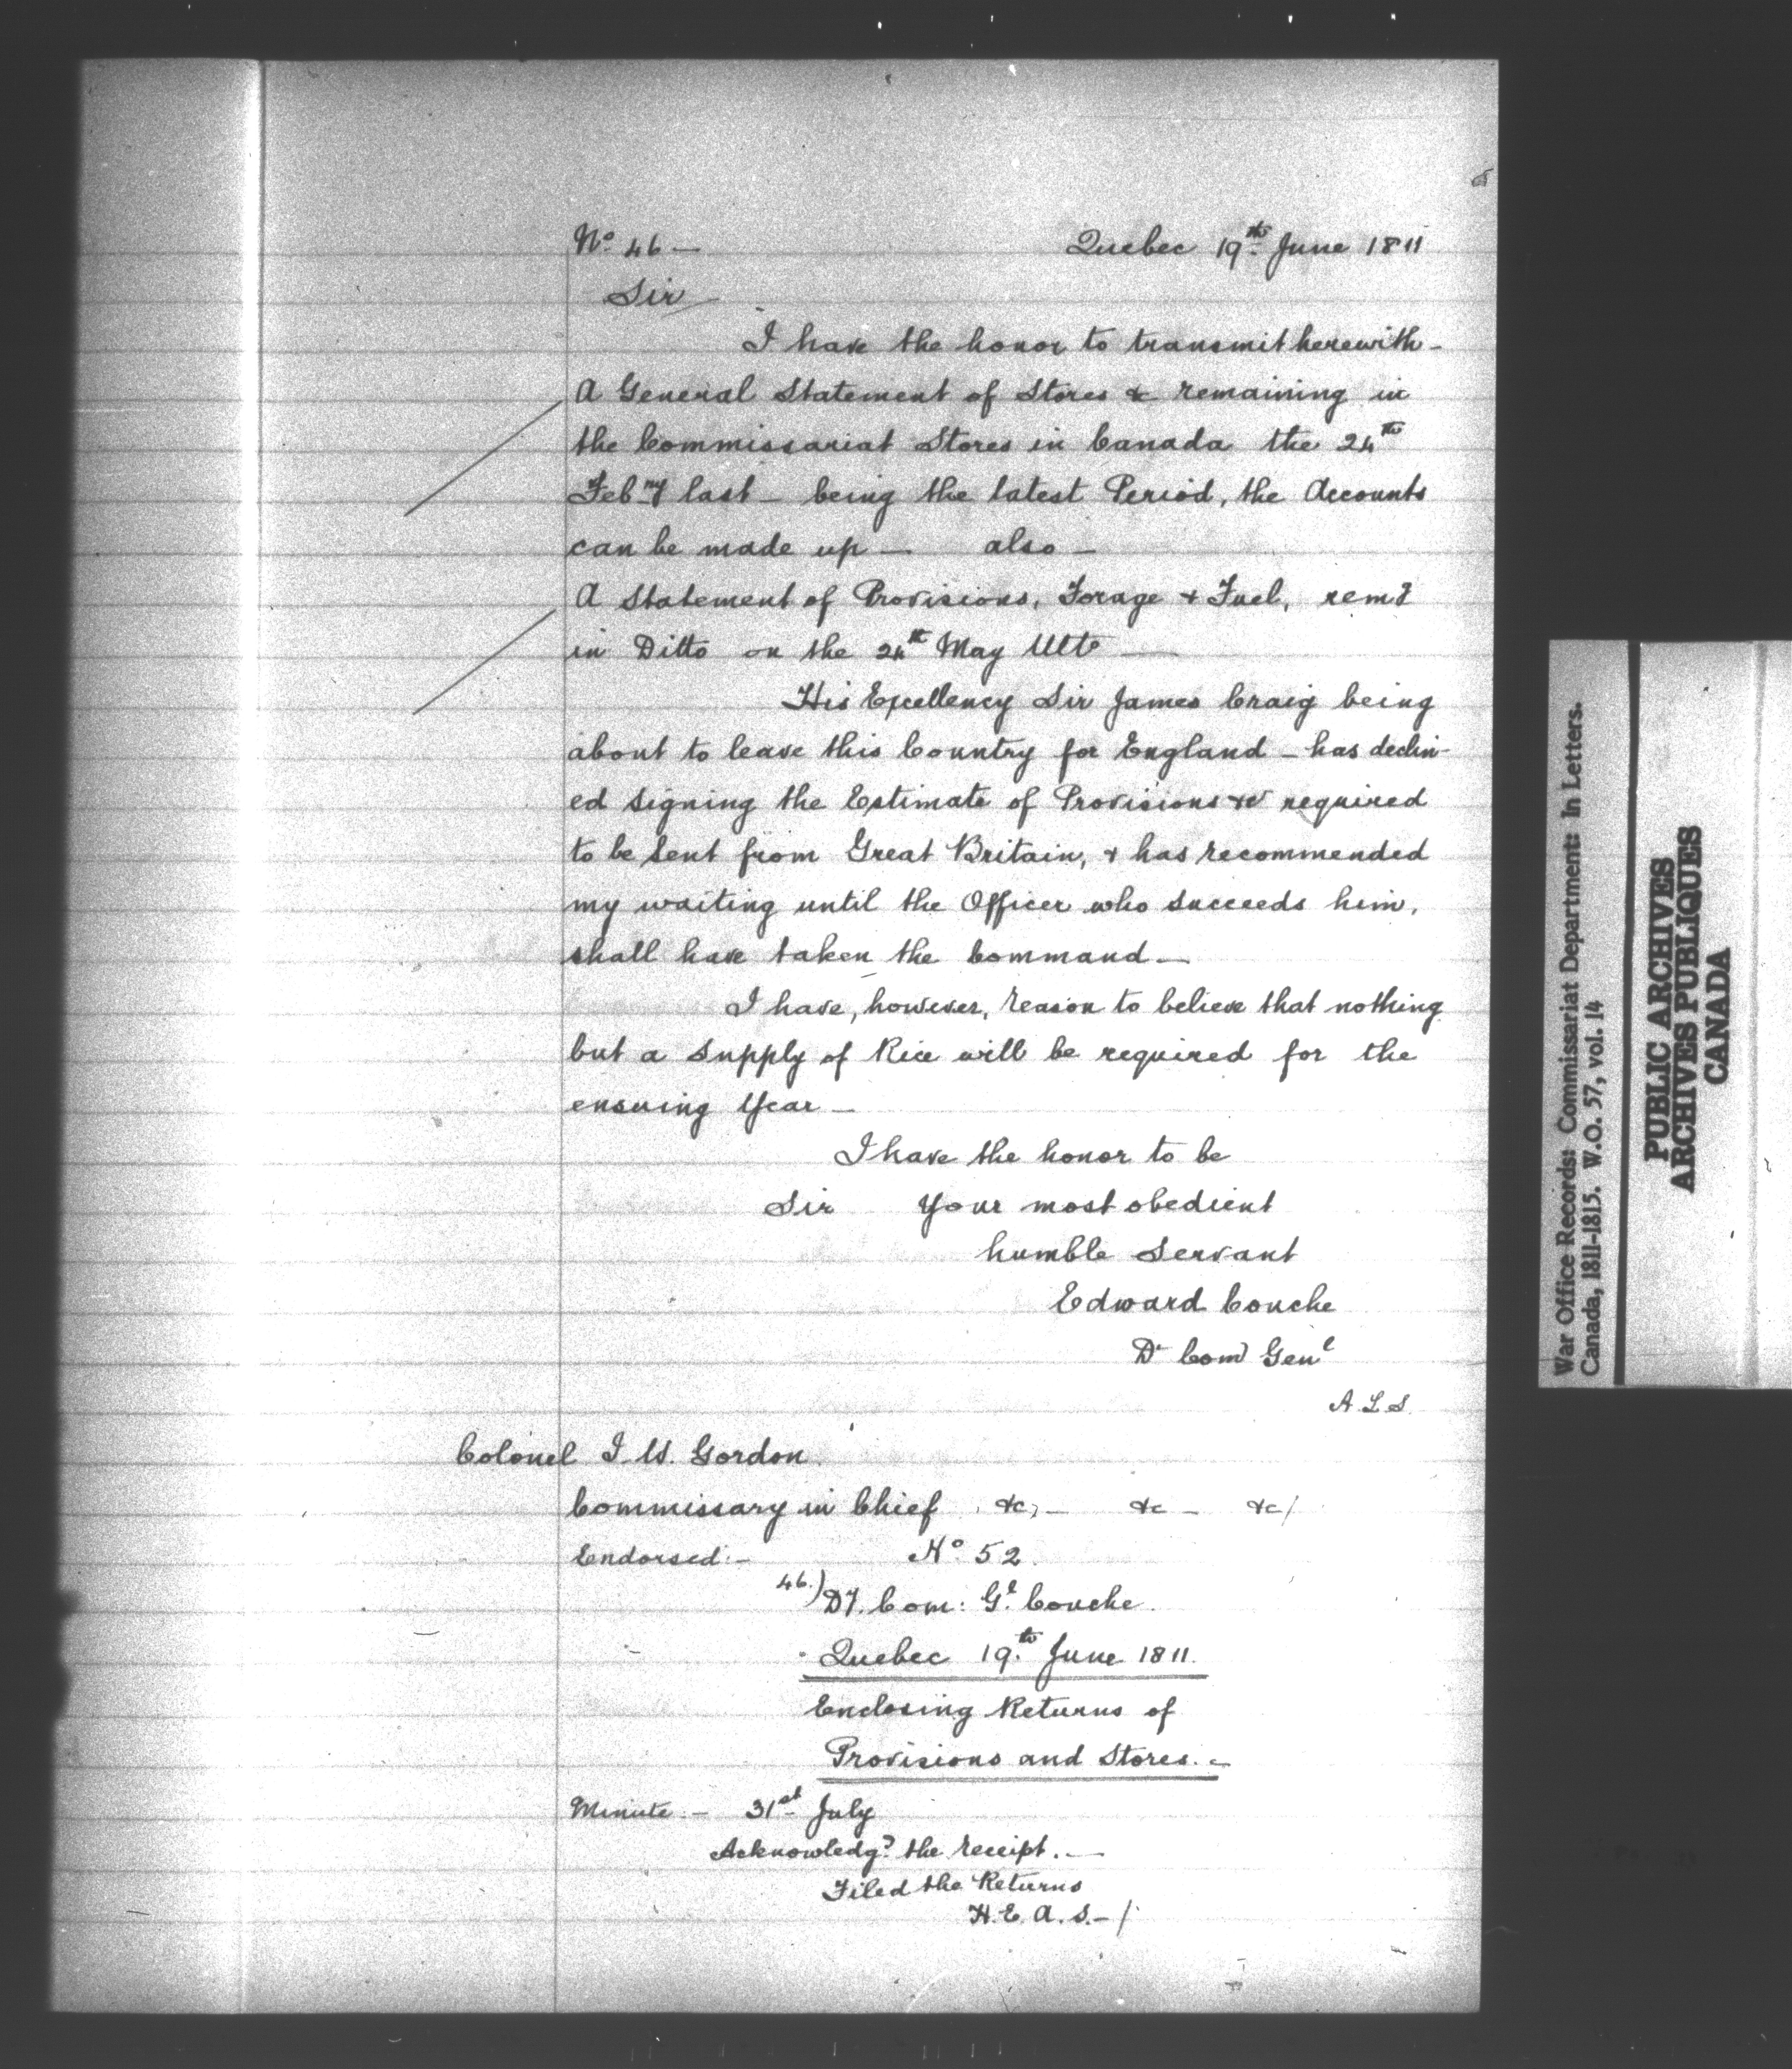 5
No. 46 — Quebec 19th June 1811
Sir
I have the honor to transmit herewith -
A General Statement of Stores &c remaining in
the Commissariat Stores in Canada the 24th
Febry last — being the latest Period, the Accounts
can be made up — also —
A Statement of Provisions, Forage & Fuel, remg
in Ditto on the 24th May Ulto —
His Excellency Sir James Craig being
about to leave this Country for England — has declin-
ed signing the Estimate of Provisions &c required
to be sent from Great Britain, & has recommended
my waiting until the Officer who succeeds him,
shall have taken the Command —
I have, however, reason to believe that nothing
but a supply of Rice will be required for the
ensuing Year —
I have the honor to be
Sir Your most obedient
humble Servant
Edward Couche
Dy Com Genl
A.L.S.
Colonel J. W. Gordon
Commissary in Chief &c, — &c — &c/
Endorsed: — No. 52.
46.) Dy. Com: Gl. Couche.
Quebec 19.th June 1811.
Enclosing Returns of
Provisions and Stores. —
Minute. — 31st July
Acknowledgd the receipt. —
Filed the Returns
H.E.A.S. — /
War Office Records: Commissariat Department: In Letters.
Canada, 1811-1815. W.O. 57, vol. 14
PUBLIC ARCHIVES
ARCHIVES PUBLIQUES
CANADA